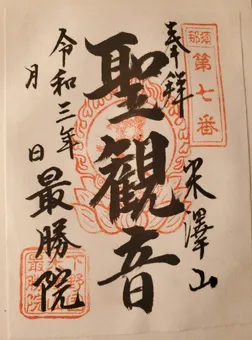 第七番
奉拝
米澤山
聖観音
令和三年
月 日
最勝院